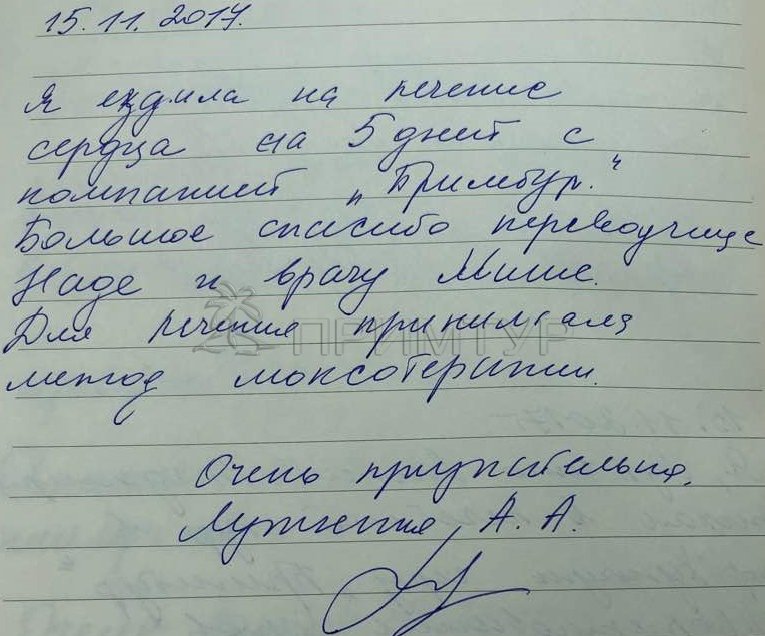 15.11.2017.
Я ездила на лечение
сердца на 5 дней с
компанией „Примтур."
Большое спасибо переводчице
Наде и врачу Мише.
Для лечения принимала
ПРИМТУР
метод моксотерапии.
Очень признательна,
А. А.